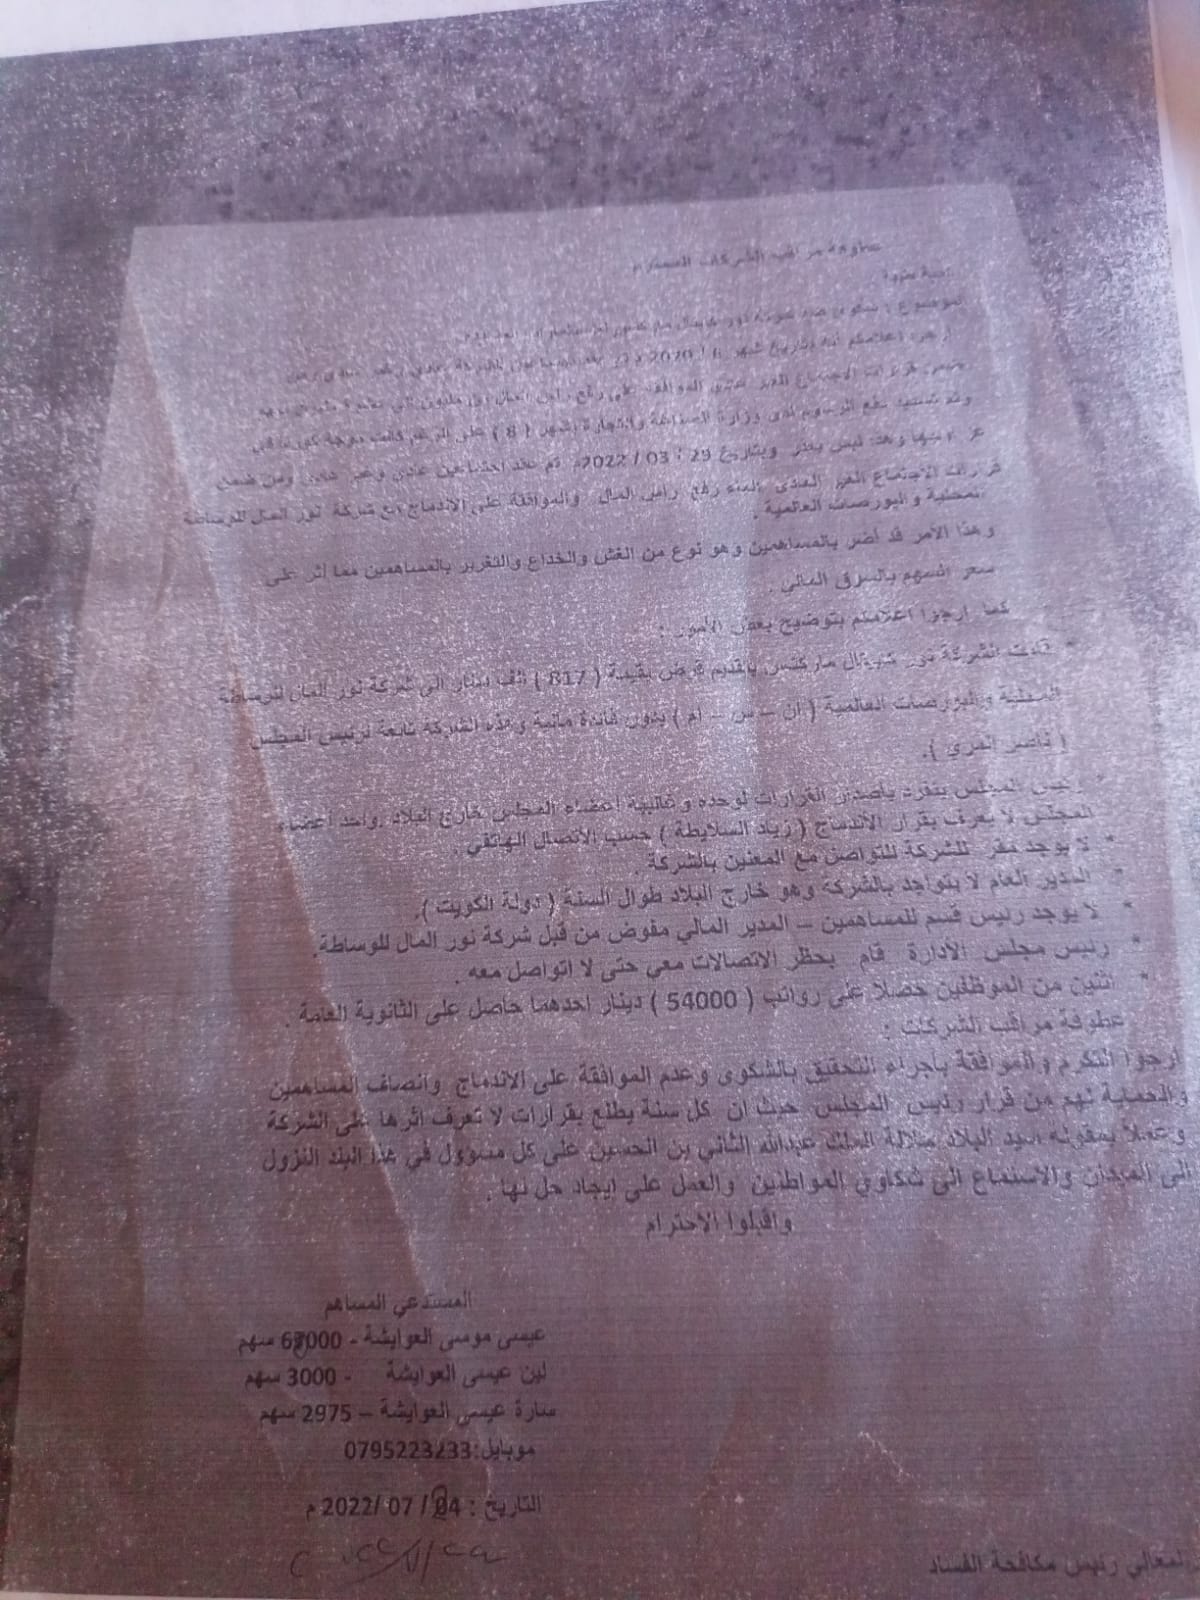 عطوفة مراقب الشركات المحترم
تحية طيبة
الموضوع : شكوى ضد شركة نور كبيتال ماركتس
ارجو اعلامكم انه بتاريخ شهر 6 / 2020
قرارات الاجتماع الغير عادي الموافقة على رفع راس المال من مليون الى
وتم تسديد دفع الرسوم لدى وزارة الصناعة والتجارة بشهر ( 8 ) على الرغم كانت موجة كورونا في
وهذا ليس بعذر وبتاريخ 29 / 03 / 2022م تم عقد اجتماعين عادي وغير عادي ومن ضمن
قرارات الاجتماع الغير العادي الغاء رفع راس المال والموافقة على الاندماج مع شركة نور المال للوساطة
المحلية والبورصات العالمية .
وهذا الأمر قد أضر بالمساهمين وهو نوع من الغش والخداع والتغرير بالمساهمين مما أثر على
سعر السهم بالسوق المالي .
كما ارجوا اعلامكم بتوضيح بعض الأمور :
* قامت الشركة نور كبيتال ماركتس بتقديم قرض بقيمة ( 817 ) الف دينار الى شركة نور المال للوساطة
المحلية والبورصات العالمية ( ان – س – ام ) بدون فائدة مالية وهذه الشركة تابعة لرئيس المجلس
( ناصر المري ).
* رئيس المجلس ينفرد بأصدار القرارات لوحده وغالبية اعضاء المجلس خارج البلاد .واحد أعضاء
المجلس لا يعرف بقرار الأندماج ( زياد السلايطة ) حسب الاتصال الهاتفي .
* لا يوجد مقر للشركة للتواصل مع المعنين بالشركة .
* المدير العام لا يتواجد بالشركة وهو خارج البلاد طوال السنة ( دولة الكويت ).
* لا يوجد رئيس قسم للمساهمين – المدير المالي مفوض من قبل شركة نور المال للوساطة.
* رئيس مجلس الأدارة قام بحظر الاتصالات معي حتى لا اتواصل معه .
* اثنين من الموظفين حصلا على رواتب ( 54000 ) دينار احدهما حاصل على الثانوية العامة .
عطوفة مراقب الشركات :
ارجوا التكرم والموافقة بأجراء التحقيق بالشكوى وعدم الموافقة على الاندماج وانصاف المساهمين
والحماية لهم من قرار رئيس المجلس حيث ان كل سنة يطلع بقرارات لا تعرف اثرها على الشركة
وعملاً بمقوله سيد البلاد جلالة الملك عبدالله الثاني بن الحسين على كل مسؤول في هذا البلد النزول
الى الميدان والاستماع الى شكاوي المواطنين والعمل على إيجاد حل لها .
واقبلوا الاحترام
المستدعي المساهم
عيسى موسى العوايشة - 68000 سهم
لين عيسى العوايشة - 3000 سهم
سارة عيسى العوايشة – 2975 سهم
موبايل:0795223233
التاريخ : 04/ 07 /2022 م
لمعالي رئيس مكافحة الفساد